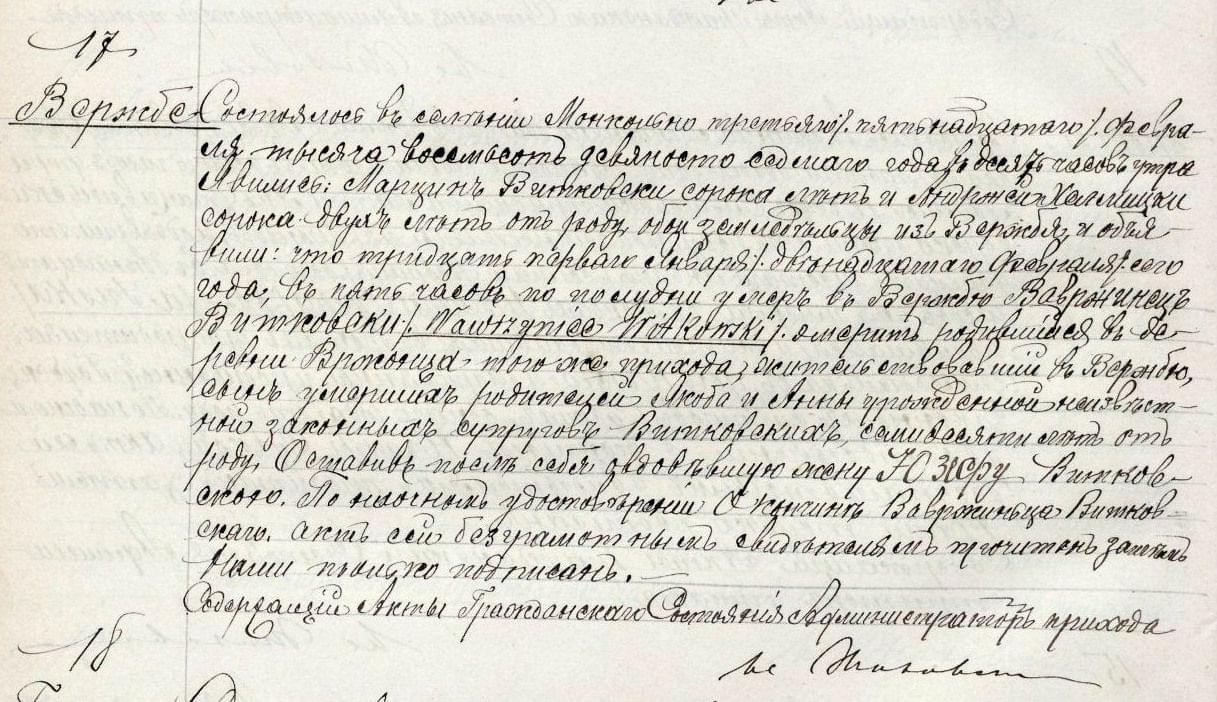 17
Вержбе Состоялось въ селеніи Монкольно третьяго /. пятьнадцатаго /. Февра-
ля тысяча восемьсотъ девяносто седмаго года въ десять часовъ утра
Явились: Марцинъ Витковски сорока лѣтъ и Андржей
сорока двухъ лѣтъ отъ роду, обои земледѣльцы изъ Вержбя, и объя-
вили: что тридцать перваго Января /. двѣнадцатаго Февраля /. сего
года, въ пять часовъ по полудни умеръ въ Вержбю Вавржинецъ
Витковски /. Wawrzyniec Witkowski /. эмеритъ родившійся въ де-
ревни того же прихода, жительствовавшій въ Вержбю,
сынъ умершихъ родителей Якоба и Анны урожденной неизвѣст-
ной законныхъ супруговъ Витковскихъ, семидесяти лѣтъ отъ
роду, Оставивъ послѣ себя овдовѣвшую жену Юзефу Витков-
скою. По наочномъ удостовѣреніи О кончинѣ Вавржиньца Витков-
скяго. актъ сей безграмотнымъ свидѣтелямъ прочитанъ
Нами подписанъ. —
Содержащій Акты Гражданскаго Состоянія Администраторъ прихода
18